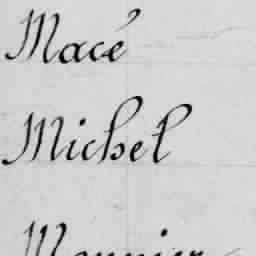 Macé
Michel